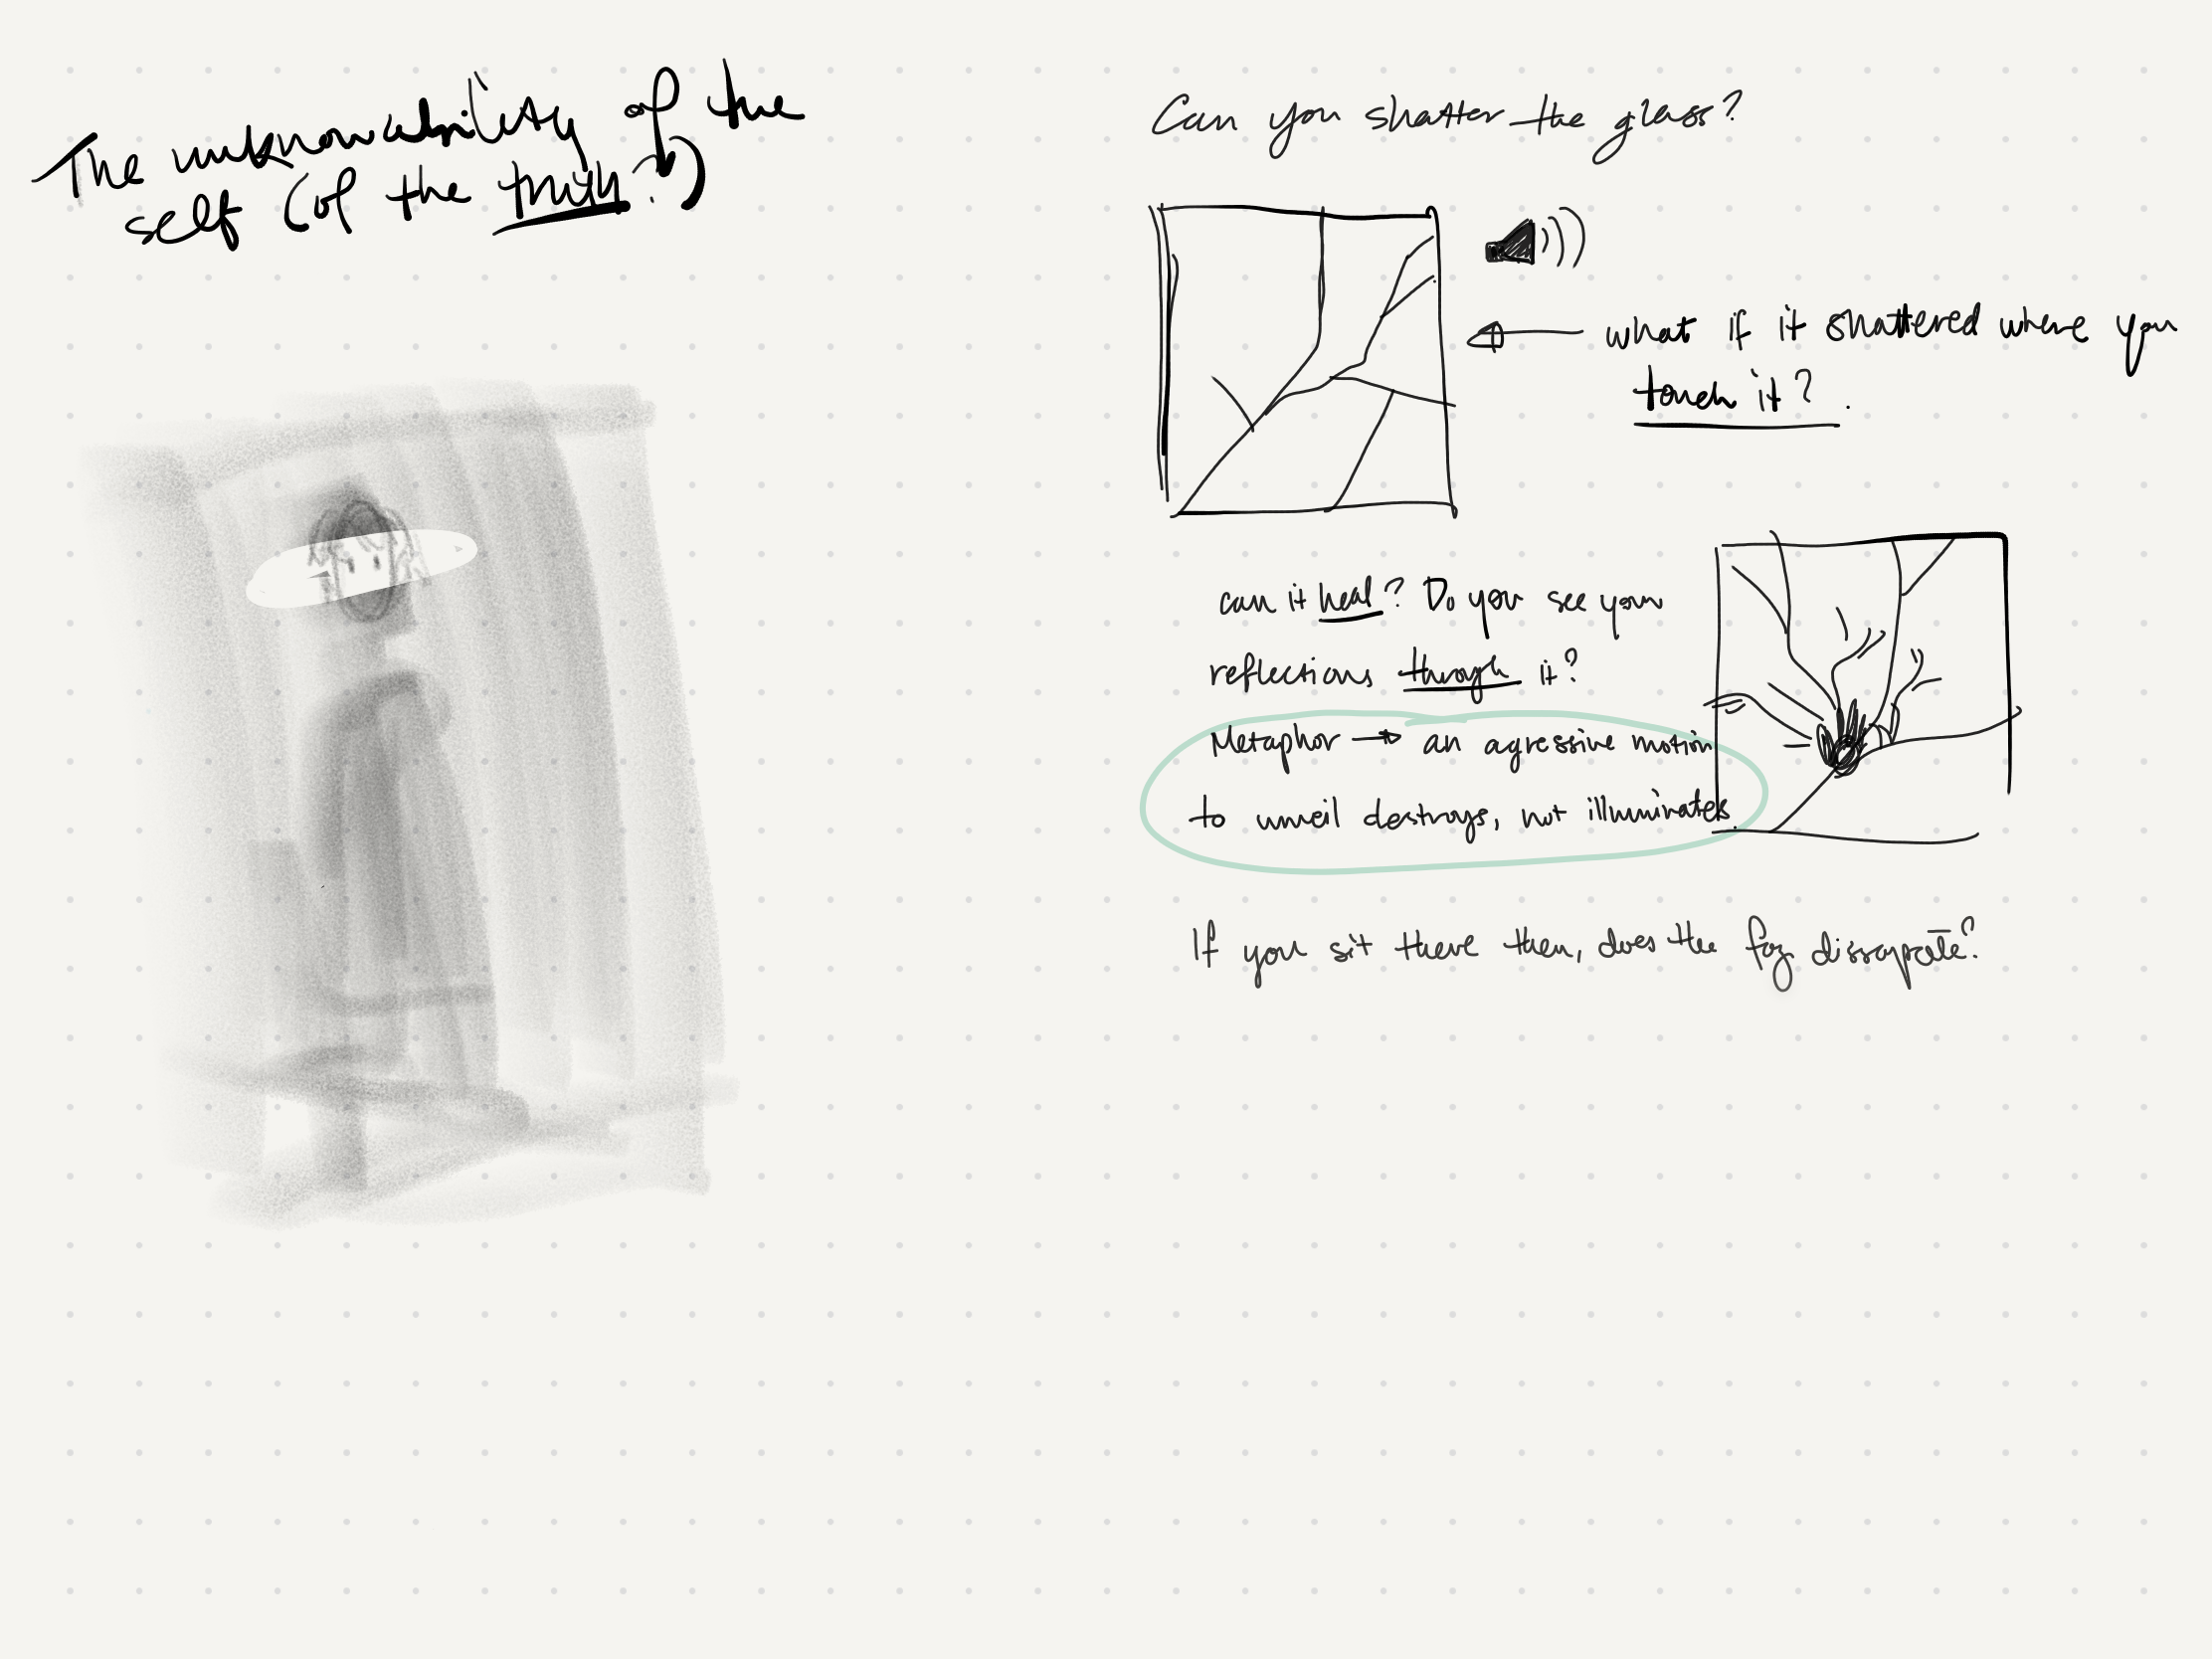 The unknowability of the
self (of the truth?)
Can you shatter the glass?
what if it shattered where you
touch it?
can it heal? Do you see your
reflections through it?
Metaphor → an agressive motion
to unveil destroys, not illuminates.
If you sit there then, does the fog dissapate?